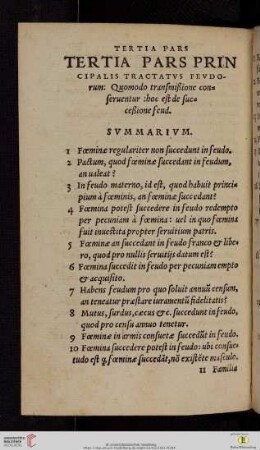 TERTIA PARS
TERTIA PARS PRIN
CIPALIS TRACTATVS FEVDO-
rum: Quomodo transmissione con-
seruentur :hoc est de suc-
cessione feud.
SVMMARIVM.
1 Fœminæ regulariter non succedunt in feudo.
2 Pactum, quod fœminæ succedant in feudum,
an ualeat?
3 In feudo materno, id est, quod habuit princi-
pium à fœminis, an fœminæ succedant?
4 Fœmina potest succedere in feudo redempto
per pecuniam à fœmina: uel in quo fœmina
fuit inuestita propter seruitium patris.
5 Fœminæ an succedant in feudo franco & libe-
ro, quod pro nullis seruitijs datum est?
6 Fœmina succedit in feudo per pecuniam empto
& acquisito.
7 Habens feudum pro quo soluit annuũ censum,
an teneatur præstare iuramentũ fidelitatis?
8 Mutus, surdus, cæcus &c. succedunt in feudo,
quod pro censu annuo tenetur.
9 Fœminæ in armis consuetæ succedũt in feudo.
10 Fœmina succedere potest in feudo: ubi consue-
tudo est q̃ fœminæ succedãt, nõ existẽte masculo.
11 Familia